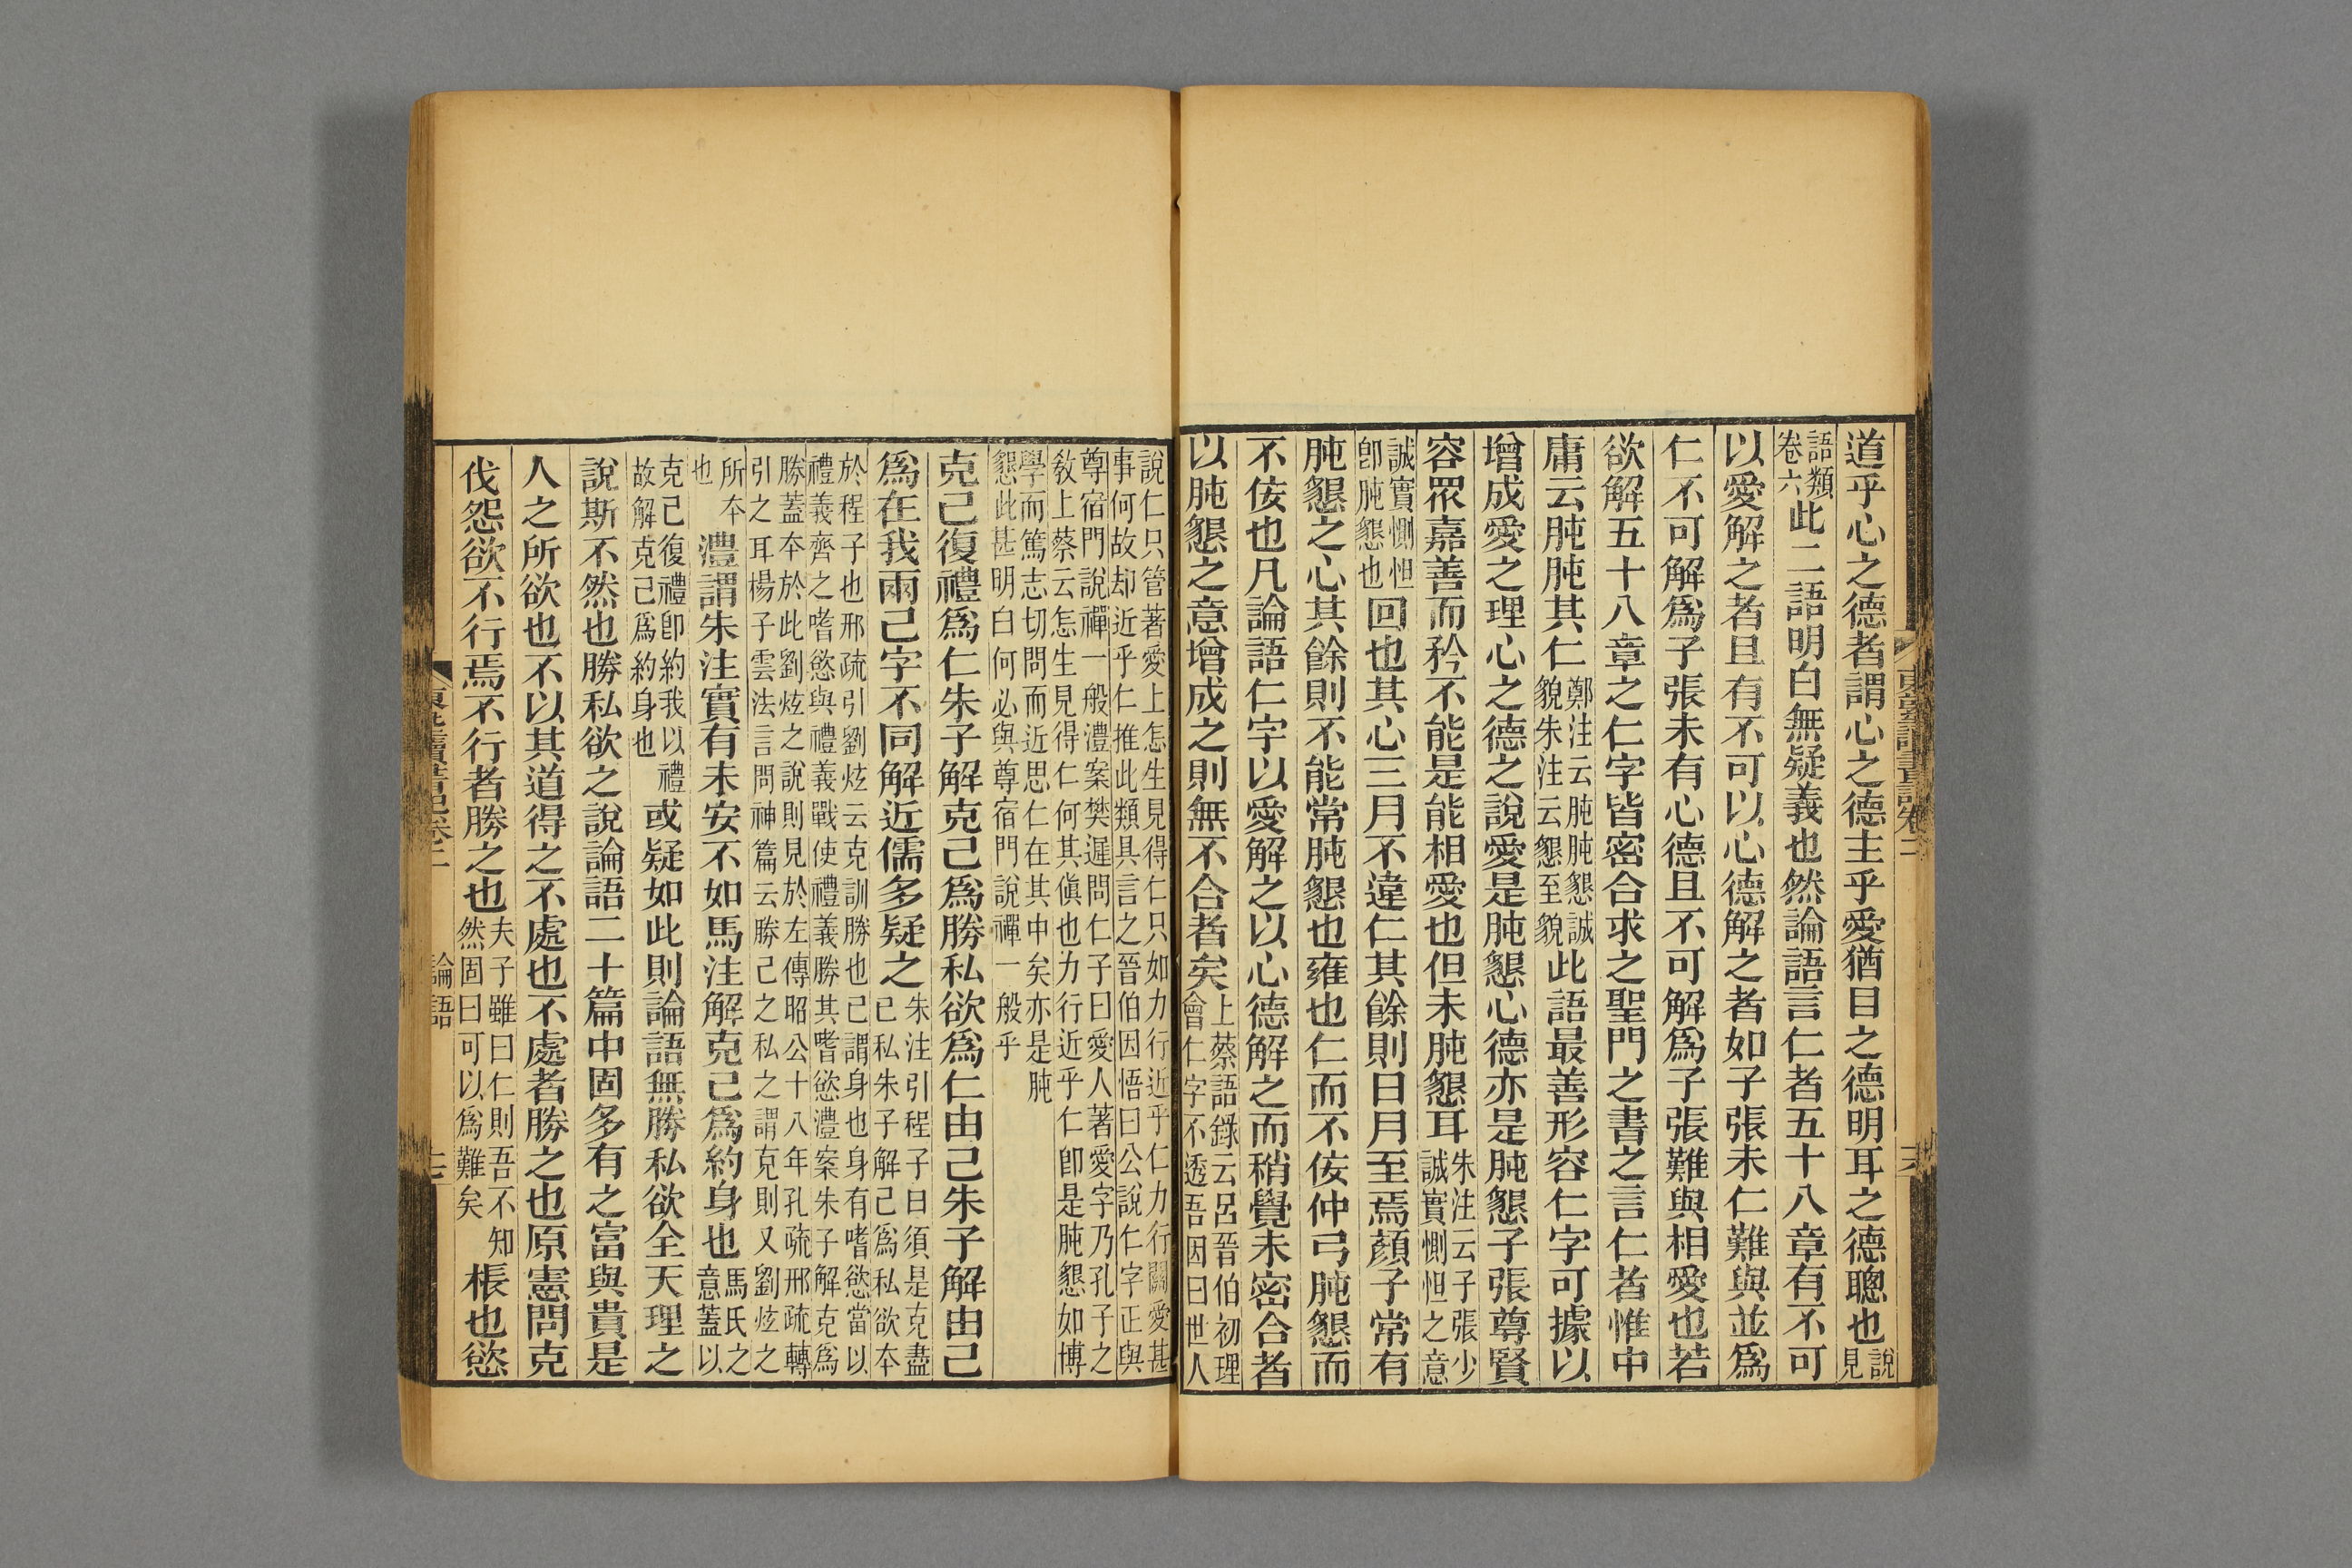 道乎心之德者謂心之德主乎愛猶目之德明耳之德聰也說見
語類卷六此二語明白無疑義也然論語言仁者五十八章有不可
以愛解之者且有不可以心德解之者如子張未仁難與並爲
仁不可解爲子張未有心德且不可解爲子張難與相愛也若
欲解五十八章之仁字皆密合求之聖門之書之言仁者惟中
庸云肫肫其仁鄭注云肫肫懇誠貌朱注云懇至貌此語最善形容仁字可據以
增成愛之理心之德之說愛是肫懇心德亦是肫懇子張尊賢
容眾嘉善而矜不能是能相愛也但未肫懇耳朱注云子張少誠實惻怛之意
誠實惻怛卽肫懇也回也其心三月不違仁其餘則日月至焉顏子常有
肫懇之心其餘則不能常肫懇也雍也仁而不佞仲弓肫懇而
不佞也凡論語仁字以愛解之以心德解之而稍覺未密合者
以肫懇之意增成之則無不合者矣上蔡語錄云呂晉伯初理會仁字不透吾因曰世人
說仁只管著愛上怎生見得仁只如力行近乎仁力行關愛甚
事何故却近乎仁推此類具言之晉伯因悟曰公說仁字正與
尊宿門說禪一般澧案樊遲問仁子曰愛人著愛字乃孔子之
敎上蔡云怎生見得仁何其傎也力行近乎仁卽是肫懇如博
學而篤志切問而近思仁在其中矣亦是肫
懇此甚明白何必與尊宿門說禪一般乎
克己復禮爲仁朱子解克己爲勝私欲爲仁由己朱子解由己
爲在我兩己字不同解近儒多疑之朱注引程子曰須是克盡己私朱子解己爲私欲本
於程子也邢疏引劉炫云克訓勝也己謂身也身有嗜慾當以
禮義齊之嗜慾與禮義戰使禮義勝其嗜慾澧案朱子解克爲
勝蓋本於此劉炫之說則見於左傳昭公十八年孔疏邢疏轉
引之耳楊子雲法言問神篇云勝己之私之謂克則又劉炫之
所本也澧謂朱注實有未安不如馬注解克己爲約身也馬氏之意蓋以
克己復禮卽約我以禮故解克己爲約身也或疑如此則論語無勝私欲全天理之
說斯不然也勝私欲之說論語二十篇中固多有之富與貴是
人之所欲也不以其道得之不處也不處者勝之也原憲問克
伐怨欲不行焉不行者勝之也夫子雖曰仁則吾不知然固曰可以爲難矣棖也慾
論語